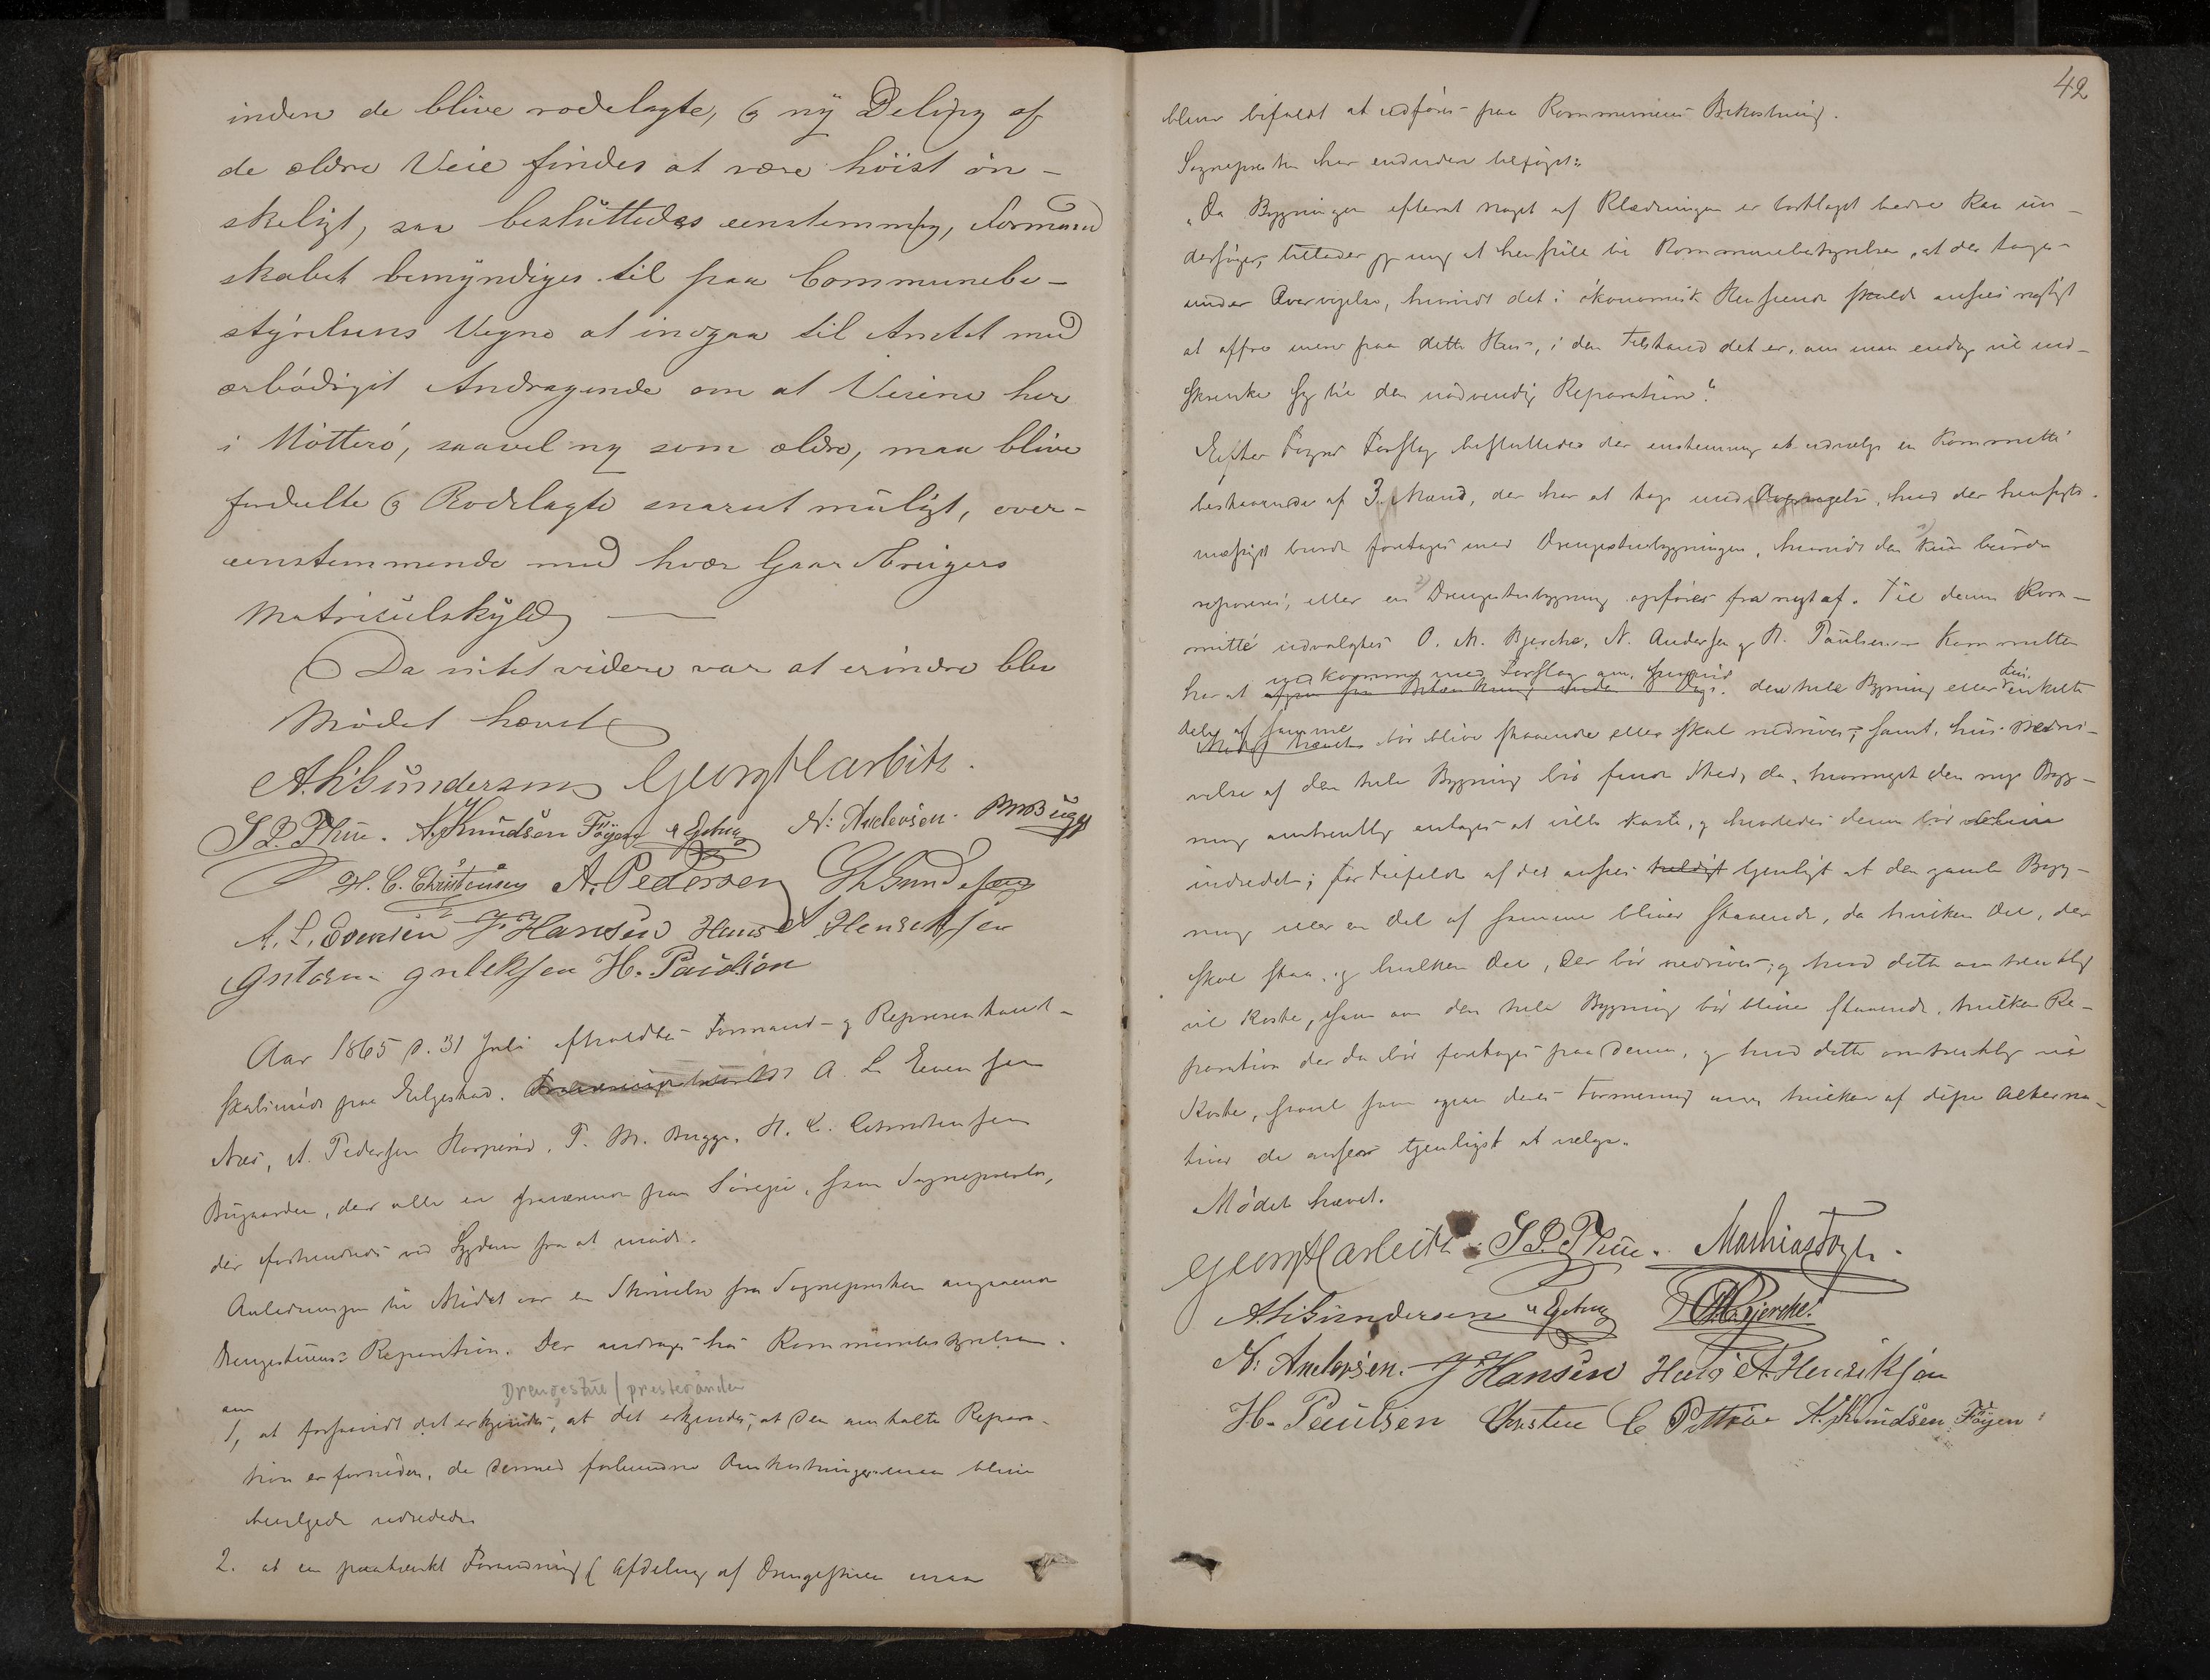 inden de blive rodelagte, og ny Deling af
de ældre Veie findes at være höist ön-
skeligt, saa besluttedes eenstemmig, Formand
skabet bemyndiges til paa Communebe-
styrelsens Vegne at indgaa til Amtet med
ærbödigst Andragende om at Veiene her
i Nötterö, saavel ny som ældre, maa blive
fordeelte og Rodelagte snarest muligt, over-
eenstemmende med hver Gaar Brugers
Matriculskyld
Da intet videre var at erindre blev
Mödet hævet
A. H. Gundersen Georg Harbitz.
S. P. Thue. A. Knudsen Föyen N: Andersen. PMBugge
H. C. Christensen A. Pedersen
A. L. Evensen J. Hansen Hans A. Henriksen
H. Paulsen
Aar 1865 d. 31 Juli afholdtes Formand- og Representant-
skabsmöde paa Elgestad. A. L. Evensen
Næs, A. Pedersen, P. M. Bugge, H. C. Christensen
der alle er fraværende paa Söreise, samt Sognepresten,
der forhindredes ved Sygdom fra at möde.
Anledningen til Mödet var en Skrivelse fra Sognepresten angaaende
Drengestuens Reparation. Der andrages hos Kommunebestyrelsen
Drengestue / presteönder
om
1, at forsaavidt det erkjendes, at det erkjendes, at den omtalte Repara-
tion er fornöden, de dermed forbundne Omkostninger maa blive
udredede
2. at en paatænkt Forandring (Afdeling af Drengestuen maa
42
bliver bifaldt at udföres paa Kommunens Bekostning.
Sognepresten har endvidere tilföiet:
"Da Bygningen efterat noget af Klædningen er borttaget bedre kan un-
dersöges, tillader jeg mig at henstille til Kommunebestyrelsen, at der tages
under Overveielse, hvorvidt det i ökonomisk Henseende skulde ansees rigtigt
at offre mere paa dette Hus, i den Tilstand det er, om man endog vil ind-
skrænke sig til den nödvendig Reparation."
Efter Fogns Forslag besluttedes der enstemmig at udvælge en Kommitte
bestaaende af 3 Mænd, der har at tage under Overveielse, hvad der hensigts-
mæssigst burde foretages med Drengestubygningen, hvorvidt den 1) kun burde
repareres, eller 2) en Drengestubygning opföres fra nyt af. Til denne Kom-
mitte udvalgtes O. M. Bjercke, N. Andersen og H. Paulsen. Kommitten
har at indkomme med Forslag om, hvorvidt den hele Bygning eller enkelte
dele af samme
bör blive staaende eller skal nedrives, samt, hvis Nedri-
velse af den hele Bygning bör finde Sted, da, hvormeget den nye Byg-
ning omtrentlig antages at ville koste, og hvorledes denne bör
indredes; för Tilfælde af det ansees tjenligt at den gamle Byg-
ning eller en Del af samme bliver staaende, da hvilken Del, der
skal staa og hvilken Del, der bör nedrives, og hvad dette omtrentlig
vil koste, samt om den hele Bygning bör blive staaende, hvilken Re-
paration der da bör foretages paa denne, og hvad dette omtrentlig vil
koste, samt som opgive deres Formening om, hvilken af disse Alterna-
tiver de anser tjenligst at vælge.
Mödet hævet.
Georg Harbitz. S. P. Thue. Mathias Foyn.
A. H. Gundersen O. M. Bjercke.
N: Andersen. J. Hansen Hans A. Henriksen
H. Paulsen A. Knudsen Föyen